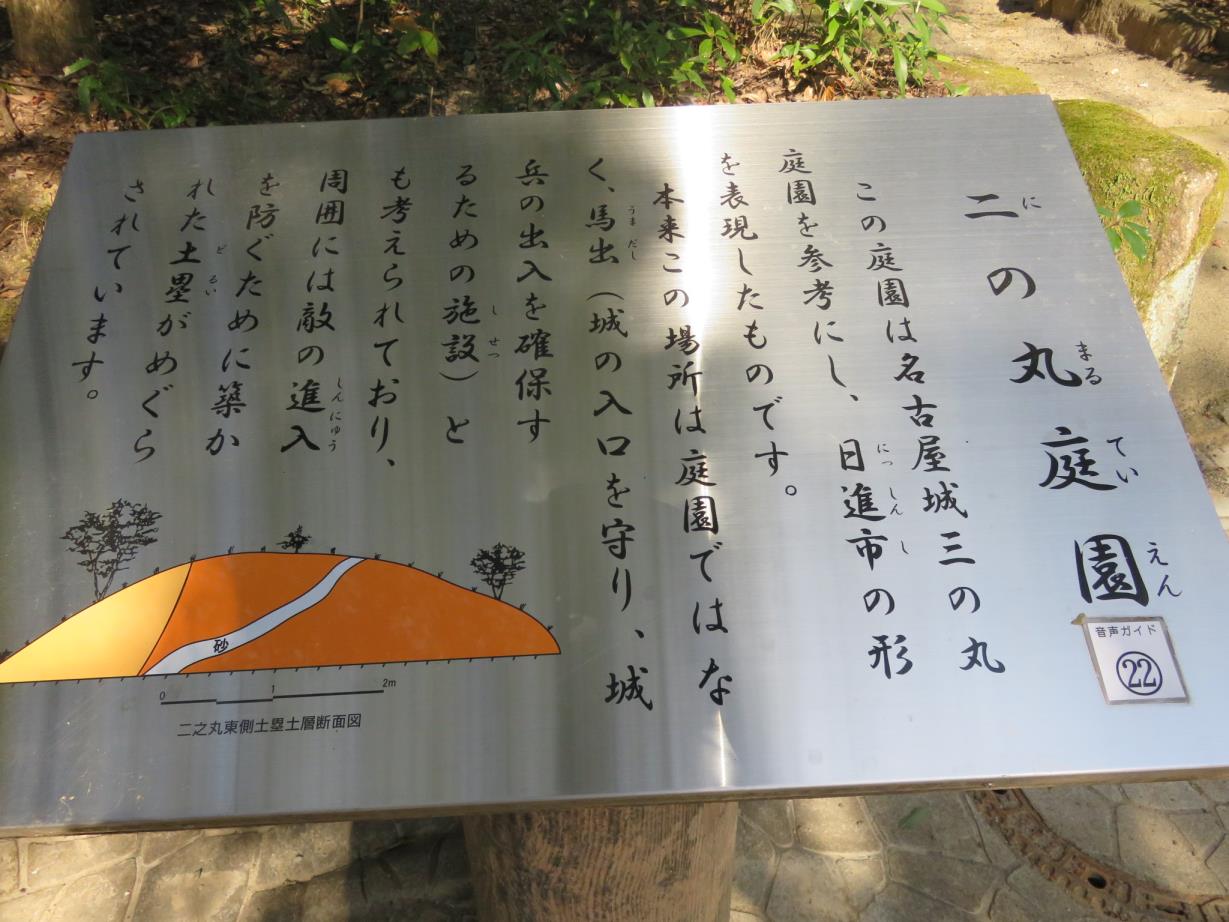 二の丸庭園
にまるていえん
この庭園は名古屋城三の丸
庭園を参考にし、日進市の形
にっしんし
を表現したものです。
本来この場所は庭園ではな
く、馬出（城の入口を守り、城
うまだし
兵の出入を確保す
るための施設）と
しせつ
も考えられており、
周囲には敵の進入
しんにゅう
を防ぐために築か
れた土塁がめぐら
どるい
されています。
音声ガイド
22
砂
0 1 2m
二之丸東側土塁土層断面図